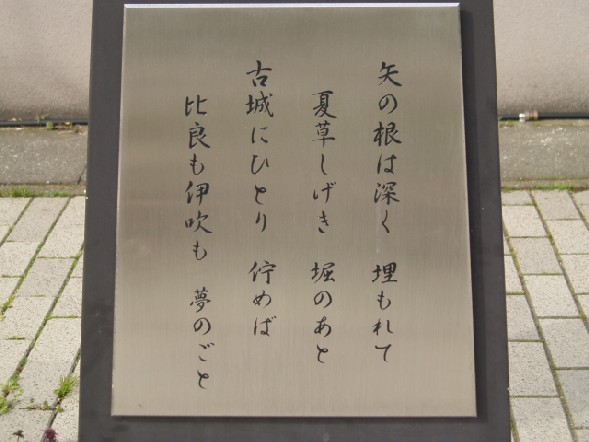 矢の根は深く 埋もれて
夏草しげき 堀のあと
古城にひとり 佇めば
比良も伊吹も 夢のごと